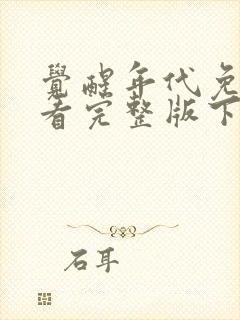 覺醒年代免
看完整版下
石耳